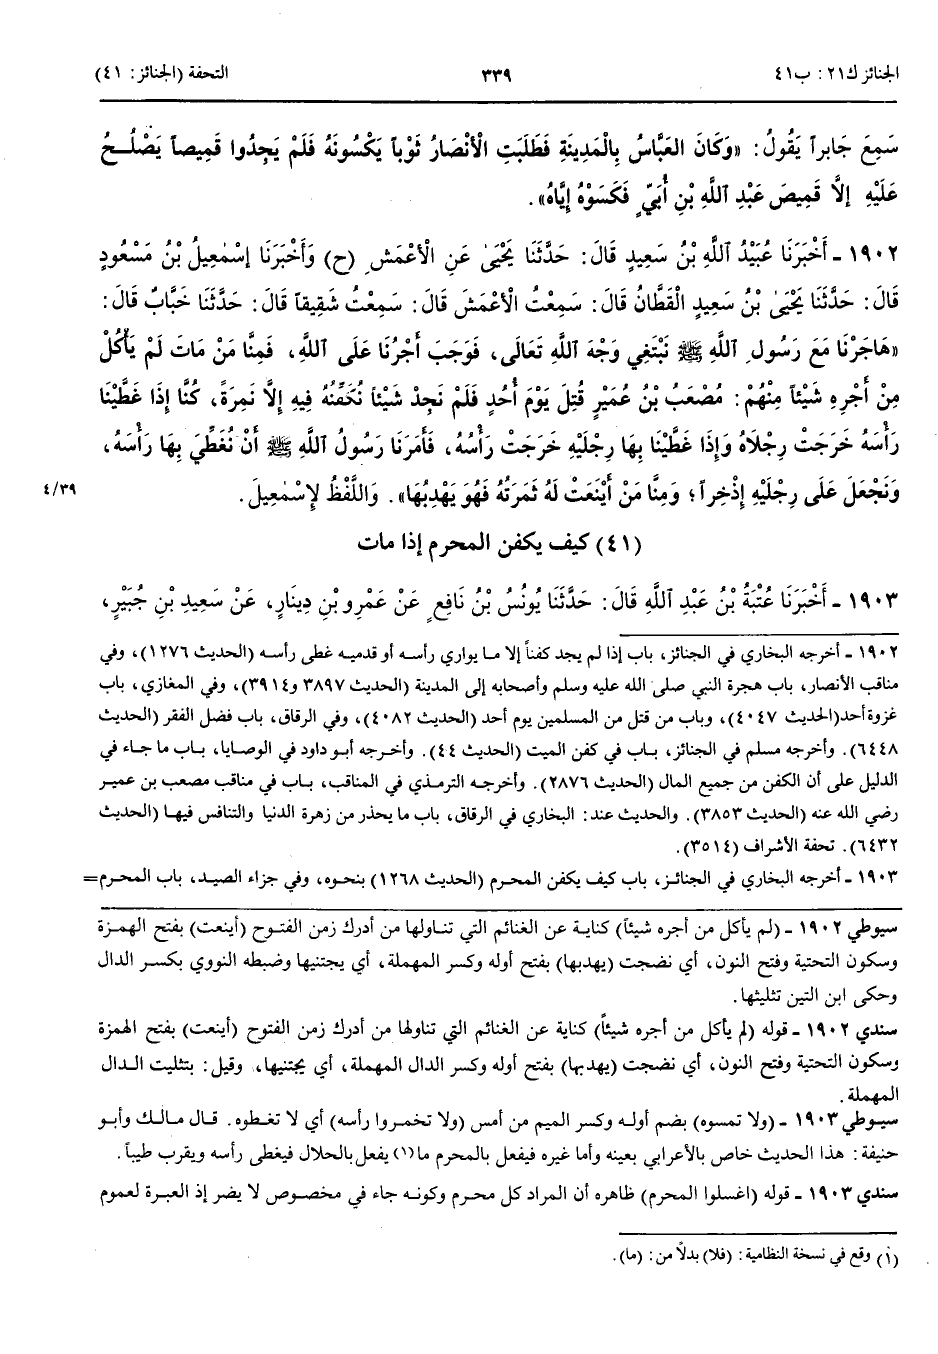 الجنائز ك٢١: ب٤١
٣٣٩
التحفة (الجنائز: ٤١)
سَمِعَ جَابِراً يَقُولُ: «وَكَانَ العَبَّاسُ بِالْمَدِينَةِ فَطَلَبَتِ الْأَنْصَارُ ثَوْباً يَكْسُونَهُ فَلَمْ يَجِدُوا قَمِيصاً يَصْلُحُ
عَلَيْهِ إلَّا قَمِيصَ عَبْدِ اللَّهِ بْنِ أُبَيٍّ فَكَسَوْهُ إيَّاهُ».
١٩٠٢ - أَخْبَرَنَا عُبَيْدُ اللَّهِ بْنُ سَعِيدٍ قَالَ: حَدَّثَنَا يَحْيَىٰ عَنِ الْأَعْمَشِ (ح) وَأَخْبَرَنَا إسْمٰعِيلُ بْنُ مَسْعُودٍ
قَالَ: حَدَّثَنَا يَحْيَىٰ بْنُ سَعِيدٍ الْقَطَّانُ قَالَ: سَمِعْتُ الْأَعْمَشَ قَالَ: سَمِعْتُ شَقِيقاً قَالَ: حَدَّثَنَا خَبَّابٌ قَالَ:
«هَاجَرْنَا مَعَ رَسُولِ اللَّهِ ﷺ نَبْتَغِي وَجْهَ اللَّهِ تَعَالَى، فَوَجَبَ أَجْرُنَا عَلَى اللَّهِ، فَمِنَّا مَنْ مَاتَ لَمْ يَأْكُلْ
مِنْ أَجْرِهِ شَيْئاً مِنْهُمْ: مُصْعَبُ بْنُ عُمَيْرٍ قُتِلَ يَوْمَ أُحُدٍ فَلَمْ نَجِدْ شَيْئاً نُكَفِّنُهُ فِيهِ إلَّا نَمِرَةً، كُنَّا إذَا غَطَّيْنَا
رَأْسَهُ خَرَجَتْ رِجْلَاهُ وَإذَا غَطَّيْنَا بِهَا رِجْلَيْهِ خَرَجَتْ رَأْسُهُ، فَأَمَرَنَا رَسُولُ اللَّهِ ﷺ أَنْ نُغَطِّيَ بِهَا رَأْسَهُ،
وَنَجْعَلَ عَلَى رِجْلَيْهِ إذْخِراً؛ وَمِنَّا مَنْ أَيْنَعَتْ لَهُ ثَمَرَتُهُ فَهُوَ يَهْدِبُهَا». وَاللَّفْظُ لِإسْمٰعِيلَ.
٤/٣٩
(٤١) كيف يكفن المحرم إذا مات
١٩٠٣ - أَخْبَرَنَا عُتْبَةُ بْنُ عَبْدِ اللَّهِ قَالَ: حَدَّثَنَا يُونُسُ بْنُ نَافِعٍ عَنْ عَمْرِو بْنِ دِينَارٍ، عَنْ سَعِيدِ بْنِ جُبَيْرٍ،
١٩٠٢ - أخرجه البخاري في الجنائز، باب إذا لم يجد كفناً إلا ما يواري رأسه أو قدميه غطى رأسه (الحديث ١٢٧٦)، وفي
مناقب الأنصار، باب هجرة النبي صلى الله عليه وسلم وأصحابه إلى المدينة (الحديث ٣٨٩٧ و٣٩١٤)، وفي المغازي، باب
غزوة أحد(الحديث ٤٠٤٧)، وباب من قتل من المسلمين يوم أحد (الحديث ٤٠٨٢)، وفي الرقاق، باب فضل الفقر (الحديث
٦٤٤٨). وأخرجه مسلم في الجنائز، باب في كفن الميت (الحديث ٤٤). وأخرجه أبو داود في الوصايا، باب ما جاء في
الدليل على أن الكفن من جميع المال (الحديث ٢٨٧٦). وأخرجه الترمذي في المناقب، باب في مناقب مصعب بن عمير
رضي الله عنه (الحديث ٣٨٥٣). والحديث عند: البخاري في الرقاق، باب ما يحذر من زهرة الدنيا والتنافس فيها (الحديث
٦٤٣٢). تحفة الأشراف (٣٥١٤).
١٩٠٣ - أخرجه البخاري في الجنائز، باب كيف يكفن المحرم (الحديث ١٢٦٨) بنحوه، وفي جزاء الصيد، باب المحرم=
سيوطي ١٩٠٢ - (لم يأكل من أجره شيئاً) كناية عن الغنائم التي تناولها من أدرك زمن الفتوح (أينعت) بفتح الهمزة
وسكون التحتية وفتح النون، أي نضجت (يهدبها) بفتح أوله وكسر المهملة، أي يجتنيها وضبطه النووي بكسر الدال
وحكى ابن التين تثليثها.
سندي ١٩٠٢ - قوله (لم يأكل من أجره شيئاً) كناية عن الغنائم التي تناولها من أدرك زمن الفتوح (أينعت) بفتح الهمزة
وسكون التحتية وفتح النون، أي نضجت (يهدبها) بفتح أوله وكسر الدال المهملة، أي يجتنيها، وقيل: بتثليث الدال
المهملة.
سيوطي ١٩٠٣ - (ولا تمسوه) بضم أوله وكسر الميم من أمس (ولا تخمروا رأسه) أي لا تغطوه. قال مالك وأبو
حنيفة: هذا الحديث خاص بالأعرابي بعينه وأما غيره فيفعل بالمحرم ما(١) يفعل بالحلال فيغطى رأسه ويقرب طيباً.
سندي ١٩٠٣ - قوله (اغسلوا المحرم) ظاهره أن المراد كل محرم وكونه جاء في مخصوص لا يضر إذ العبرة لعموم
(١) وقع في نسخة النظامية: (فلا) بدلاً من: (ما).